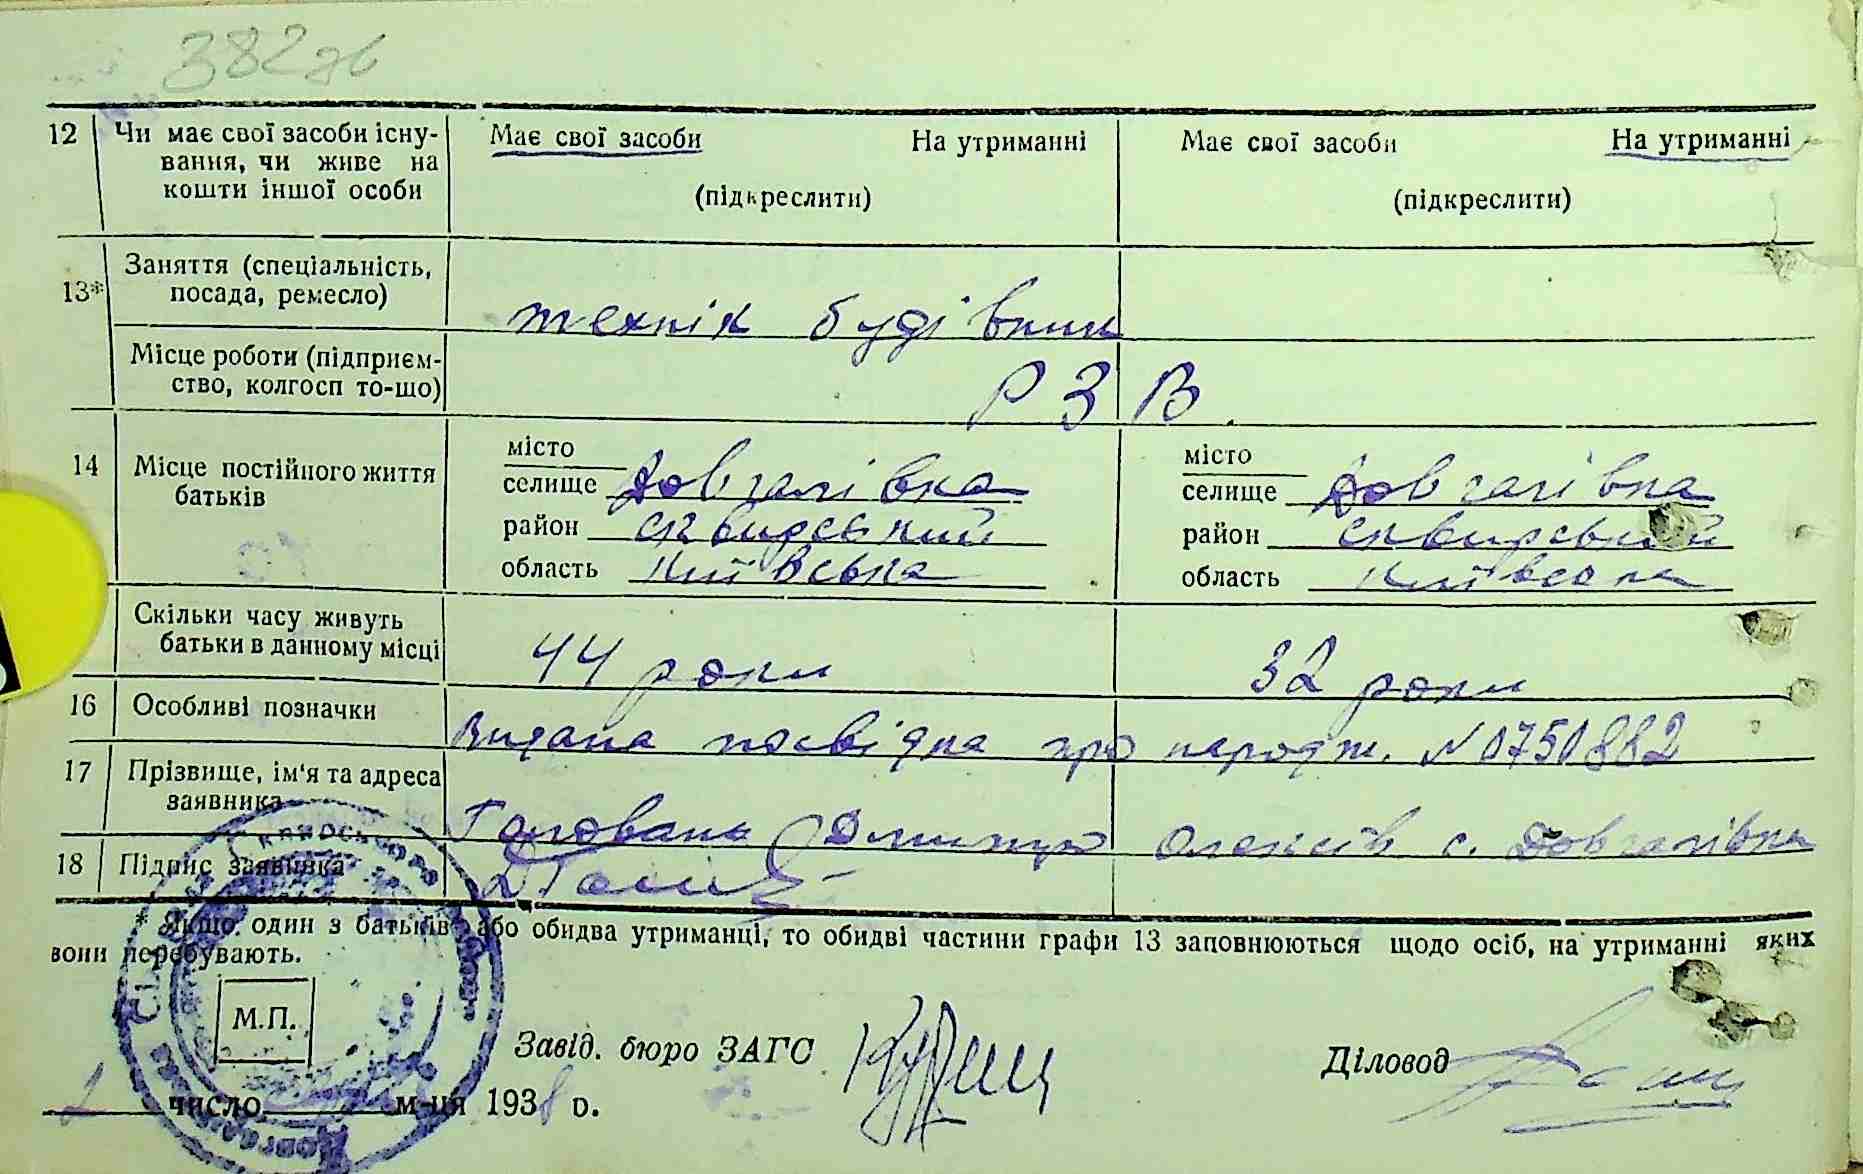 382
12 Чи має свої засоби існу- Має свої засоби На утриманні Має свої засоби На утриманні
вання, чи живе на
кошти іншої особи (підкреслити) (підкреслити)
Заняття (спеціальність,
13* посада, ремесло) технік будівник
Місце роботи (підприєм-
ство, колгосп то-що) Р З В.
14 Місце постійного життя місто місто
батьків селище Довгалівка селище Довгалівка
район сквирський район сквирський
область київська область київська
Скільки часу живуть
батьки в данному місці 44 роки 32 роки
16 Особливі позначки Видана посвідка про народж. № 0750882
17 Прізвище, ім'я та адреса
заявника Головань Дмитро Олексів с. Довгалівка
18 Підпис заявника
* Якщо один з батьків або обидва утриманці, то обидві частини графи 13 заповнюються щодо осіб, на утриманні яких
вони перебувають.
М.П.
Завід. бюро ЗАГС Діловод
число м-ця 1938 р.